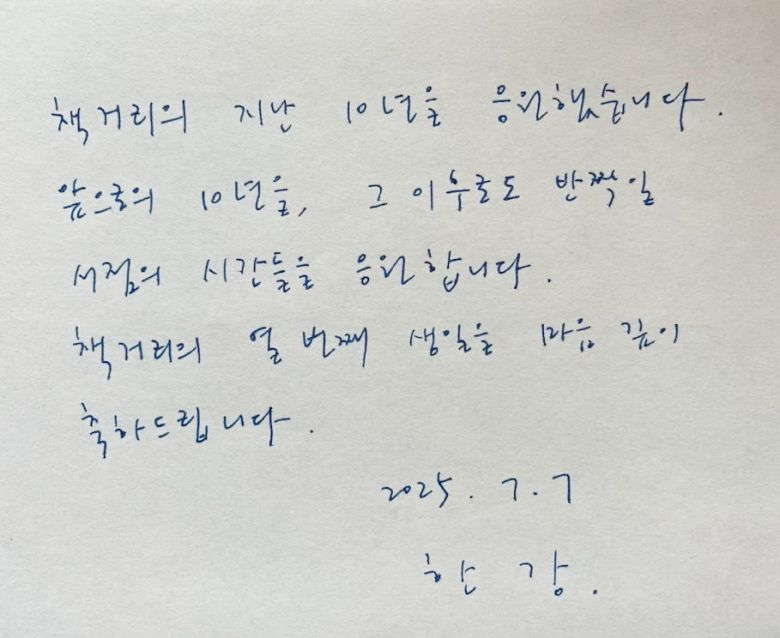 책거리의 지난 10년을 응원했습니다.
앞으로의 10년을, 그 이후로도 반짝일
서점의 시간들을 응원합니다.
책거리의 열 번째 생일을 마음 깊이
축하드립니다.
2025. 7. 7
한 강.